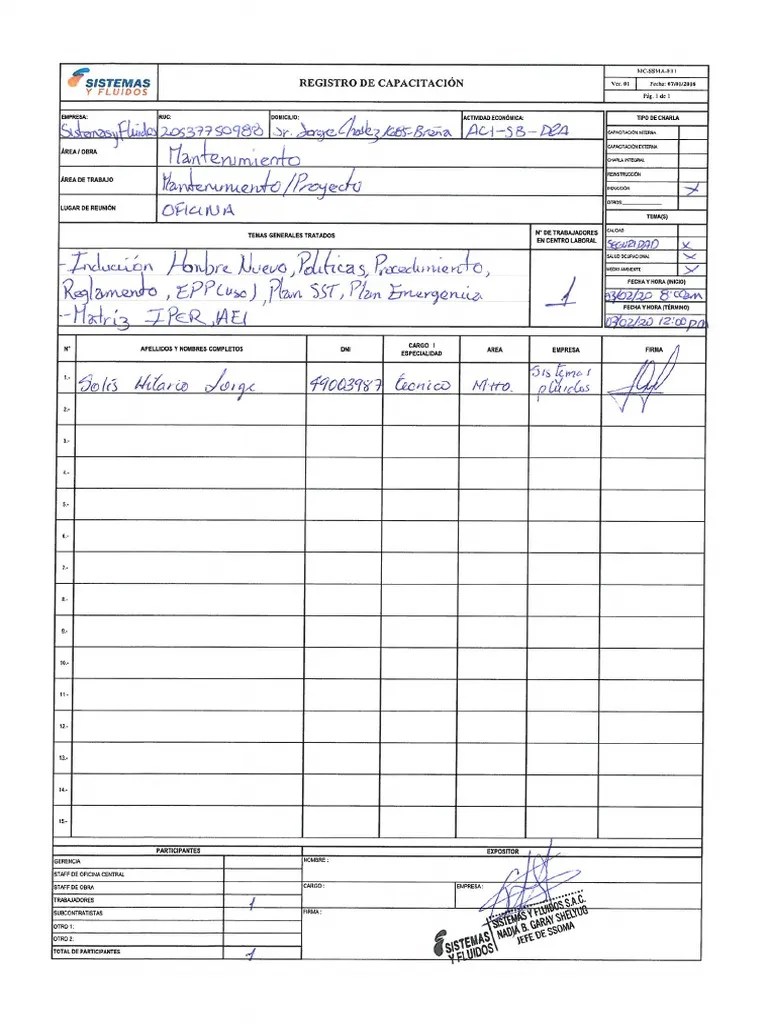 SISTEMAS
Y FLUIDOS
REGISTRO DE CAPACITACIÓN
MC-SSMA-F11
Ver. 01 Fecha: 07/01/2018
Pág. 1 de 1
EMPRESA: RUC: DOMICILIO: ACTIVIDAD ECONÓMICA:
Sistemas y Fluidos 20537750988 Jr. Jorge Chavez 1685-Breña ACI-SB-DRA
ÁREA / OBRA Mantenimiento
ÁREA DE TRABAJO Mantenimiento/Proyecto
LUGAR DE REUNIÓN OFICINA
TIPO DE CHARLA
CAPACITACIÓN INTERNA
CAPACITACIÓN EXTERNA
CHARLA INTEGRAL
REINSTRUCCIÓN
INDUCCIÓN X
OTROS
TEMA(S)
CALIDAD
SEGURIDAD X
SALUD OCUPACIONAL X
MEDIO AMBIENTE X
FECHA Y HORA (INICIO)
03/02/20 8:00am
FECHA Y HORA (TÉRMINO)
03/02/20 12:00pm
TEMAS GENERALES TRATADOS
N° DE TRABAJADORES
EN CENTRO LABORAL
1
-Inducción Hombre Nuevo, Políticas, Procedimiento,
Reglamento, EPP(uso), Plan SST, Plan Emergencia
-Matriz IPER, AEI
N° APELLIDOS Y NOMBRES COMPLETOS DNI CARGO / ESPECIALIDAD AREA EMPRESA FIRMA
1.- Solis Hilario Jorge 49003987 técnico Mtto. Sistemas fluidos
2.-
3.-
4.-
5.-
6.-
7.-
8.-
9.-
10.-
11.-
12.-
13.-
14.-
15.-
PARTICIPANTES
GERENCIA
STAFF DE OFICINA CENTRAL
STAFF DE OBRA
TRABAJADORES 1
SUBCONTRATISTAS
OTRO 1:
OTRO 2:
TOTAL DE PARTICIPANTES 1
EXPOSITOR
NOMBRE :
CARGO : EMPRESA :
FIRMA :
SISTEMAS
Y FLUIDOS
SISTEMAS Y FLUIDOS S.A.C.
NADJA B. GARAY SHELYUG
JEFE DE SSOMA